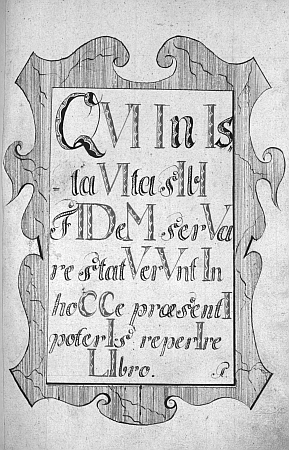 QVI In Is,
ta VIta sIbI
FIDeM serVa
re statVerVnt In
hoCCe præsentI
poterIs reperIre
LIbro.